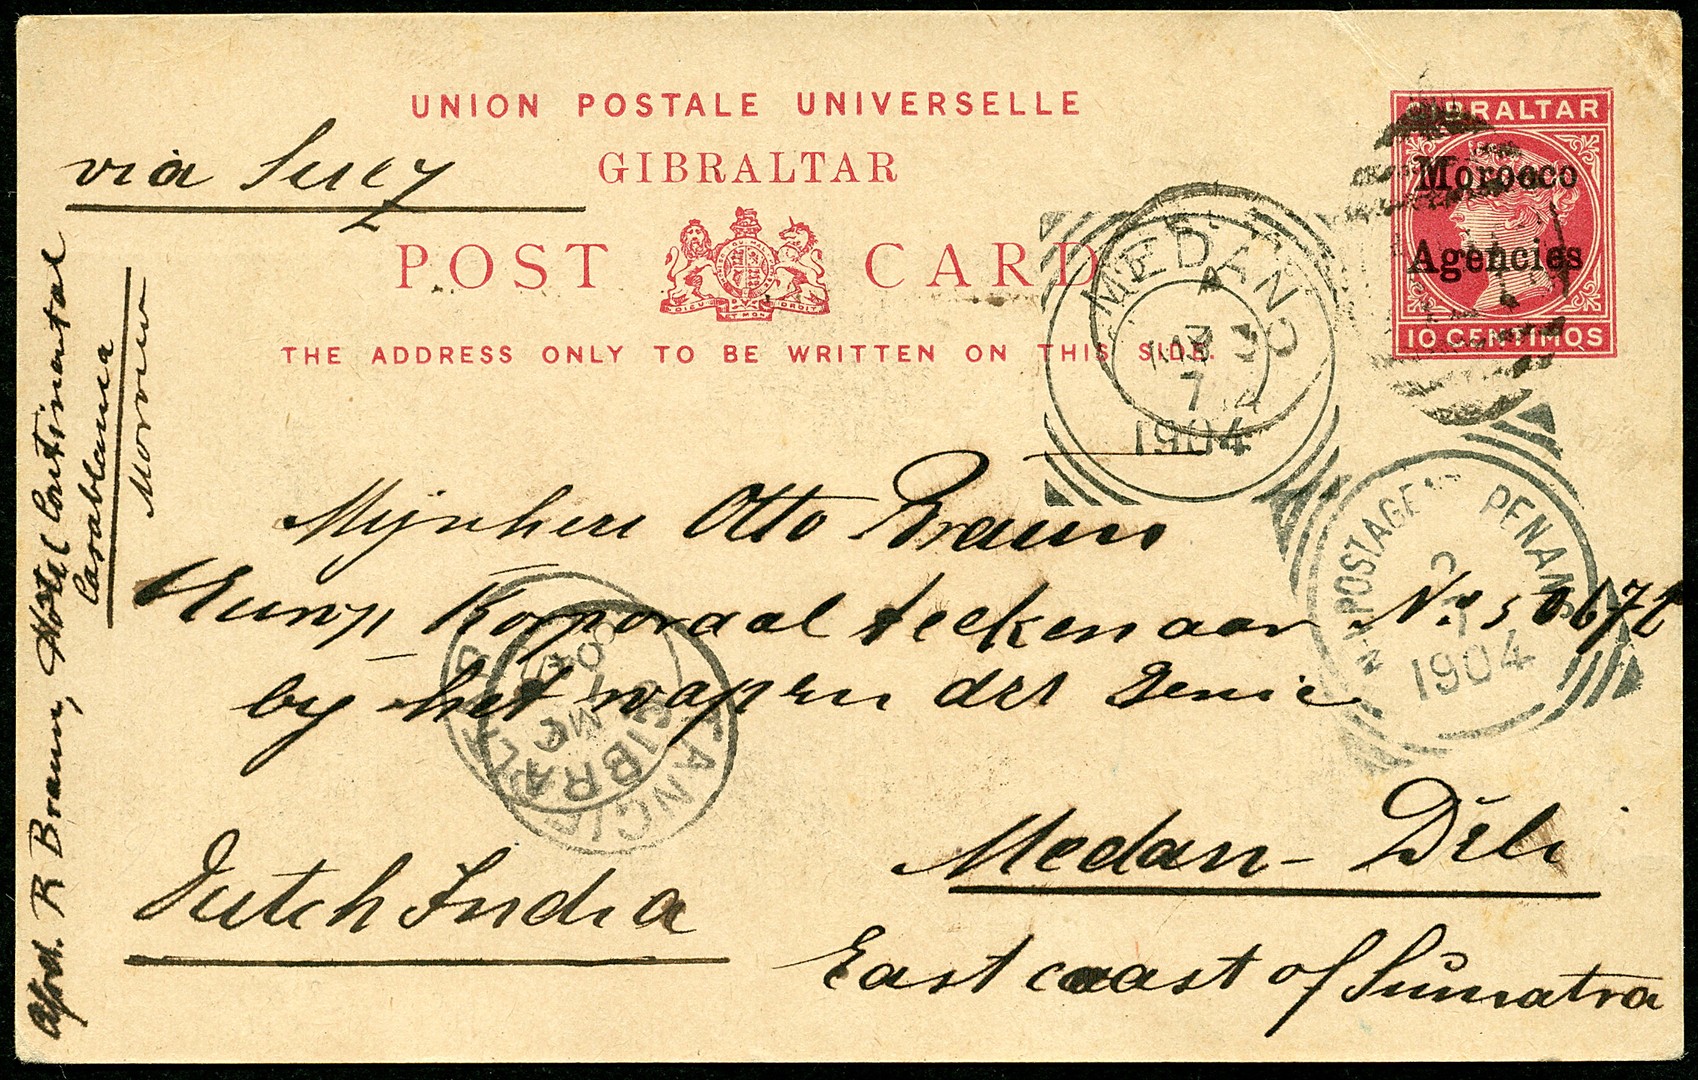 UNION POSTALE UNIVERSELLE
GIBRALTAR
POST CARD
THE ADDRESS ONLY TO BE WRITTEN ON THIS SIDE.
GIBRALTAR
Morocco
Agencies
10 CENTIMOS
via Suez
MEDAN
1904
N.I. POSTAGENT PENANG
1904
Mijnheer Otto Braun
Europ Korporaal teekenaar No 50672
by het wapen der Genie
Medan - Deli
East coast of Sumatra
Dutch India
GIBRALTAR
TANGIER
Afsd. R Braun, Hotel Continental
Casablanca
Morocco